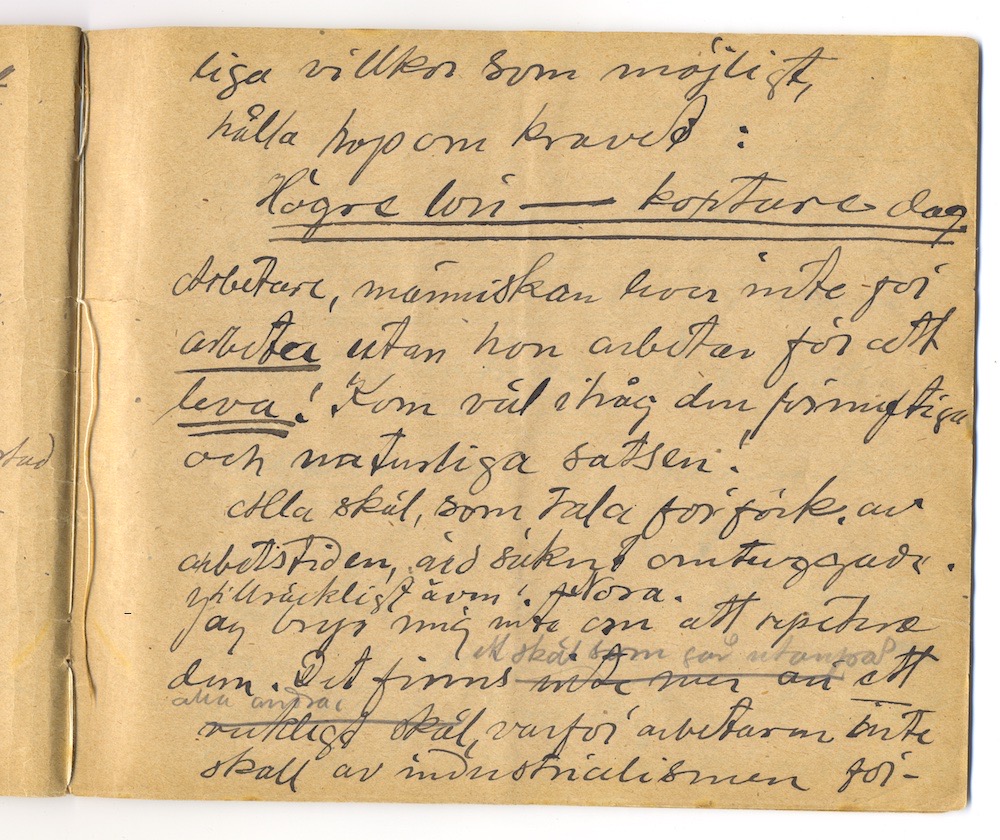 liga villkor som möjligt,
hålla hop om kravet :
Högre lön — kortare dag
Arbetare, människan lever inte för
arbeta utan hon arbetar för att
leva! Kom väl ihåg den förnuftiga
och naturliga satsen!
Alla skäl, som tala för förk. av
arbetstiden, äro säkert omtuggade.
tillräckligt även i Nora.
Jag bryr mig inte om att repetera
ett skäl som går utanpå
dem. Det finns inte mer än ett
alla andra,
riktigt skäl, varför arbetaren inte
skall av industrialismen för-